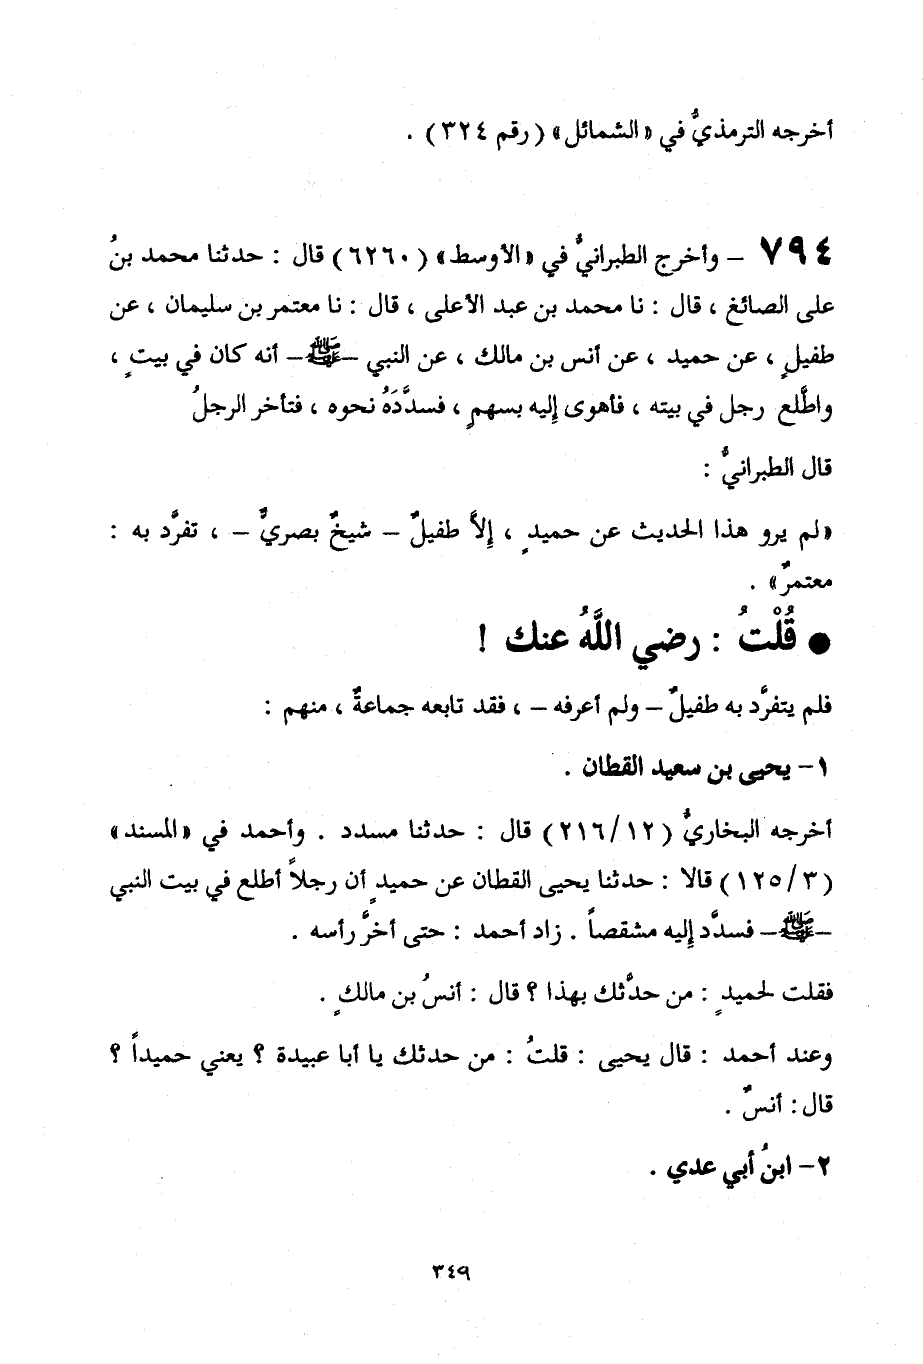 أخرجه الترمذيُّ في «الشمائل» (رقم ٣٢٤) .
٧٩٤ – وأخرج الطبرانيُّ في «الأوسط» (٦٢٦٠) قال : حدثنا محمد بنُ
على الصائغ ، قال : نا محمد بن عبد الأعلى ، قال : نا معتمر بن سليمان ، عن
طفيلٍ ، عن حميد ، عن أنس بن مالك ، عن النبي –ﷺ– أنه كان في بيتٍ ،
واطَّلع رجل في بيته ، فأهوى إليه بسهمٍ ، فسدَّدَهُ نحوه ، فتأخر الرجلُ
قال الطبرانيُّ :
«لم يرو هذا الحديث عن حميدٍ ، إلاَّ طفيلٌ – شيخٌ بصريٌّ – ، تفرَّد به :
معتمرٌ» .
● قُلْتُ : رضي اللَّهُ عنك !
فلم يتفرَّد به طفيلٌ – ولم أعرفه – ، فقد تابعه جماعةٌ ، منهم :
١– يحيى بن سعيد القطان .
أخرجه البخاريُّ (٢١٦/١٢) قال : حدثنا مسدد . وأحمد في «المسند»
(١٢٥/٣) قالا : حدثنا يحيى القطان عن حميدٍ أن رجلاً أطلع في بيت النبي
–ﷺ– فسدَّد إليه مشقصاً . زاد أحمد : حتى أخرَّ رأسه .
فقلت لحميدٍ : من حدَّثك بهذا ؟ قال : أنسُ بن مالكٍ .
وعند أحمد : قال يحيى : قلتُ : من حدثك يا أبا عبيدة ؟ يعني حميداً ؟
قال : أنسٌ .
٢– ابنُ أبي عدي .
٣٤٩